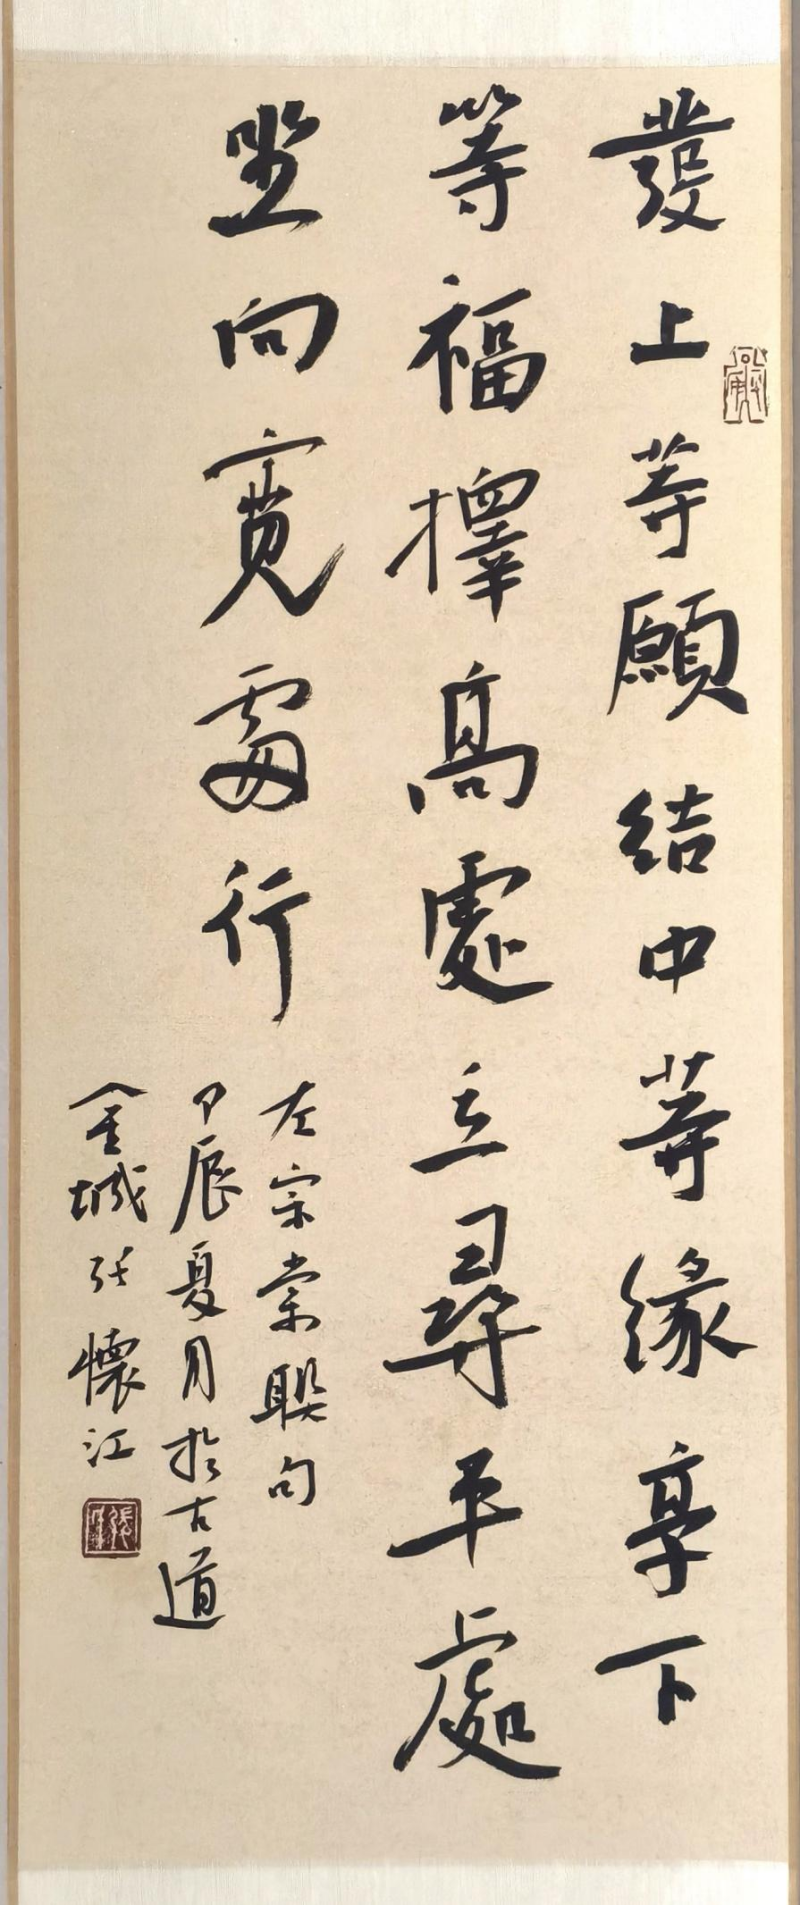 發上等願結中等緣享下
等福擇高處立尋平處
坐向寬處行
左宗棠聯句
甲辰夏月於古道
金城張懷江